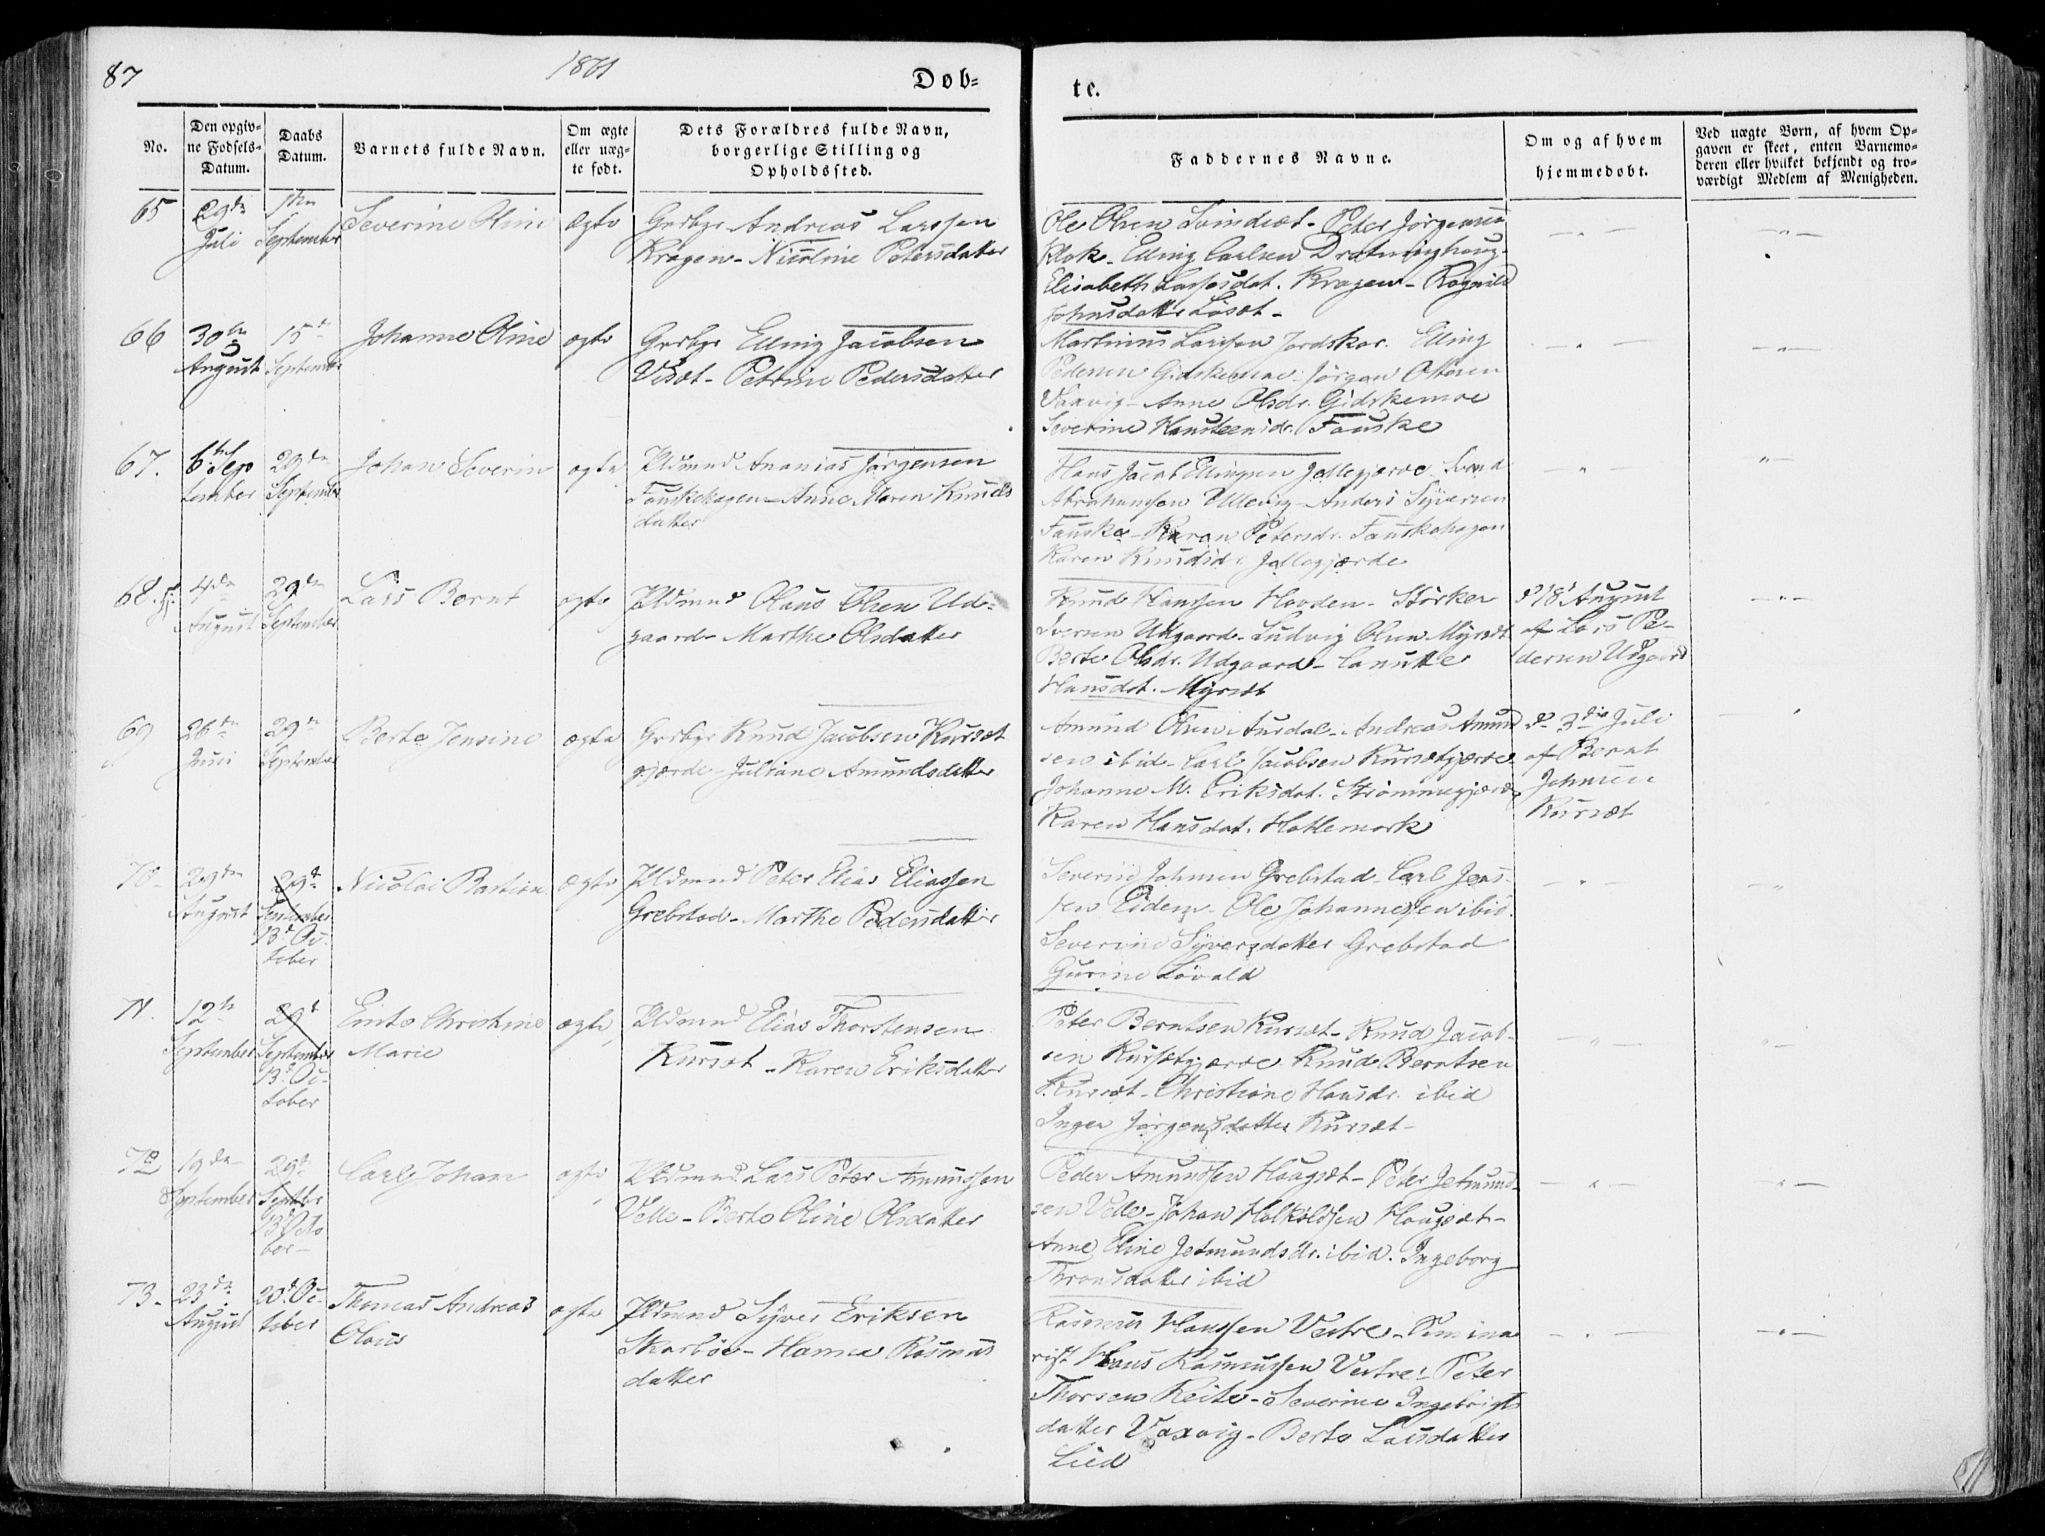 87
1861
Døb=
te.
No.
Den opgiv=
ne Fødsels=
Datum.
Daabs
Datum.
Barnets fulde Navn.
Om ægte
eller uæg=
te født.
Dets Forældres fulde Navn,
borgerlige Stilling og
Opholdssted.
Faddernes Navne.
Om og af hvem
hjemmedøbt.
Ved uægte Børn, af hvem Op=
gaven er skeet, enten Barnemo=
deren eller hvilket bekjendt og tro=
værdigt Medlem af Menigheden.
65
29de
Juli
1ste
September
Severine Oline
ægte
Grdbgr Andreas Larssen
Kragen - Nicoline Petersdatter
Ole Olsen Svindset - Peter Jørgensen
Klok - Elling Carlsen Dratninghaug -
Elisabeth Larsesdat. Kragen - Ragnild
Johnsdatter Løset -
— " —
— " —
66
30te
August
15de
September
Johanne Oline
ægte
Grdbgr Elling Jacobsen
Viset - Petrine Pedersdatter
Martinus Larssen Jordskar. Elling
Pedersen Gidskemoe. Jørgen Ottesen
Vaxvig - Anne Olsdr. Gidskemoe
Severine Hansteensdr. Fauske
— " —
— " —
67.
6te Sep
tember
29de
September
Johan Severin
ægte
Pldmnd Ananias Jørgensen
Fauskehagen - Anne Maren Knuds
datter
Hans Jacob Ellingsen Jellegjerde. Svend
Abrahamsen Ullevig - Anders Syversen
Fauske - Karen Petersdr. Fauskehagen
Karen Knudsdr. Jellegjærde
— " —
— " —
68.
4de
August
29de
September
Lars Bernt
ægte
Pldmnd Olaus Olsen Ud=
gaard - Marthe Olsdatter
Knud Hanssen Hovden - Størker
Iversen Udgaard - Ludvig Olsen Myrset
Berte Olsdr. Udgaard - Canutte
Hansdat. Myrset
d 18' August
af Lars Pe-
dersen Udgaard
— " —
69
26de
Juni
29de
September
Berte Jensine
ægte
Grdbgr Knud Jacobsen Kurset
gjærde - Juliane Amundsdatter
Amund Olsen Aursdal - Andreas Amund
sen ibid - Carl Jacobsen Kursetgjærde
Johanne M. Eriksdat. Strømmegjerde
Karen Hansdat. Hatlemark
d 3die Juli
af Bernt
Johnsen
Kurset
70.
29de
August
29de
September
13de Oc-
tober
Nicolai Bastian
ægte
Pldmnd Peter Elias Eliassen
Grebstad - Marthe Pedersdatter
Severin Johnsen Grebstad - Carl Jens-
sen Eidem - Ole Johannessen ibid.
Severine Syversdatter Grebstad
Gurine Løvold
— " —
— " —
71.
12te
September
29de
September
13de Oc-
tober
Ente Christine
Marie
ægte
Pldmnd Elias Thorstensen
Kurset - Karen Eriksdatter
Peter Berntsen Kurset - Knud Jacob-
sen Kursetgjærde Knud Berntsen
Kurset - Christiane Hansdr. ibid
Inger Jørgensdatter Kurset -
— " —
— " —
72
19de
September
29de
Septbr
13de Octo
ber -
Carl Johan
ægte
Pldmnd Lars Peter Amundsen
Velle - Berte Oline Olsdatter
Peder Amundsen Haugset - Peter Jetmund
sen Velle - Johan Halkildsen Haugset -
Anne Eline Jetmundsdr. ibid. Ingeborg
Thronsdatter ibid
— " —
— " —
73.
23de
August
20de Oc-
tober
Thomas Andreas
Olaus
ægte
Pldmnd Syver Eriksen
Skarbøe - Hanna Rasmus
datter
Rasmus Hanssen Vestre - Semina
rist Hans Rasmussen Vestre - Peter
Thorsen Reite - Severine Ingebrigts
datter Vaxvig - Berte Larsdatter
Lied
— " —
— " —